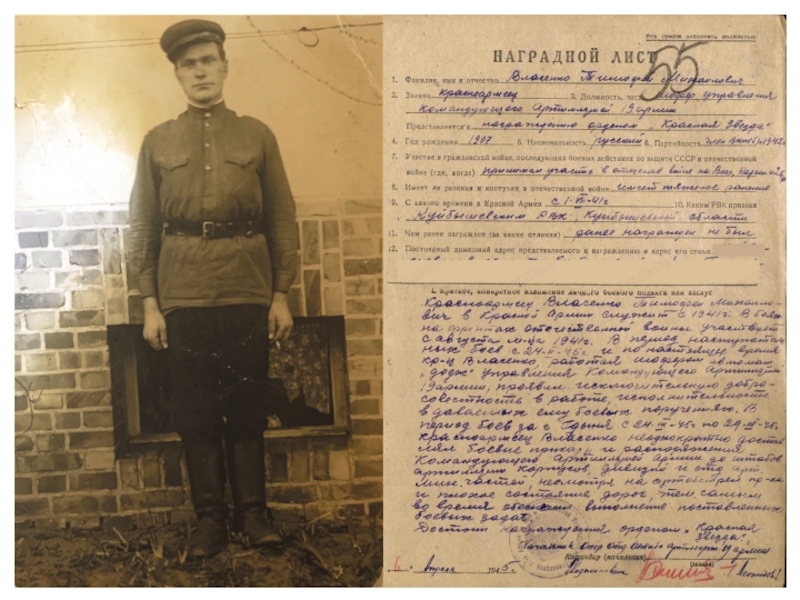 Все графы заполнять полностью
НАГРАДНОЙ ЛИСТ
65
1. Фамилия, имя и отчество Власенко Тимофей Михайлович
2. Звание красноармеец 3. Должность, часть шофер управления
командующего Артиллерией 19 армии
Представляется к награждению орденом „Красная Звезда"
4. Год рождения 1907 5. Национальность русский 6. Партийность член ВКП(б) с 1942г
7. Участие в гражданской войне, последующих боевых действиях по защите СССР и отечественной
войне (где, когда) принимал участие в отечеств. войне на
8. Имеет ли ранения и контузии в отечественной войне имеет тяжелое ранение
9. С какого времени в Красной Армии с 1941г 10. Каким РВК призван
Куйбышевским РВК Куйбышевской области
11. Чем ранее награжден (за какие отличия) ранее награжден не был
12. Постоянный домашний адрес представляемого к награждению и адрес его семьи
I. Краткое, конкретное изложение личного боевого подвига или заслуг
Красноармеец Власенко Тимофей Михайло-
вич в Красной Армии служит с 1941г. В боях
на фронтах отечественной войны участвует
с августа м-ца 1941г. В период наступатель
ных боев с 24-II-45г и по настоящее время
кр-ц Власенко работая шофером автомаш.
„додж" управления Командующего Артиллерией
19 армии, проявил исключительную добро-
совестность в работе, исполнительность
в даваемых ему боевых поручениях. В
период боев за г. Гдыня с 24-III-45г по 29-III-45г
красноармеец Власенко неоднократно достав
лял боевые приказы и распоряжения
Командующего Артиллерией Армии до штабов
артиллерии корпусов, дивизий и отд. арт.
мин. частей, несмотря на артобстрел пр-ка
и плохое состояние дорог, тем самым
во время обеспечил выполнение поставленных
боевых задач.
Достоин награждения орденом „Красная
Звезда".
Начальник Опер. отд. штаба артиллерии 19 армии
Командир (начальник)
6. апреля 1945г.